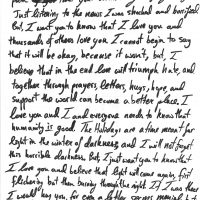 Just listening to the news I was shocked and horrified
But, I want you to know that I love you and
thousands of others love you. I cannot begin to say
that it will be okay, because it won't, but, I
believe that in the end love will triumph hate, and
together through prayers, letters, hugs, hope, and
support the world can become a better place. I
love you and I and everyone needs to know that
humanity is good. The Holidays are a time meant for
light in the winter of darkness and I will not forget
this horrible darkness. But I just want you to know that
I love you and believe that light will come again, first
flickering but then burning through the night. If I was there
I would hug you, for even a letter